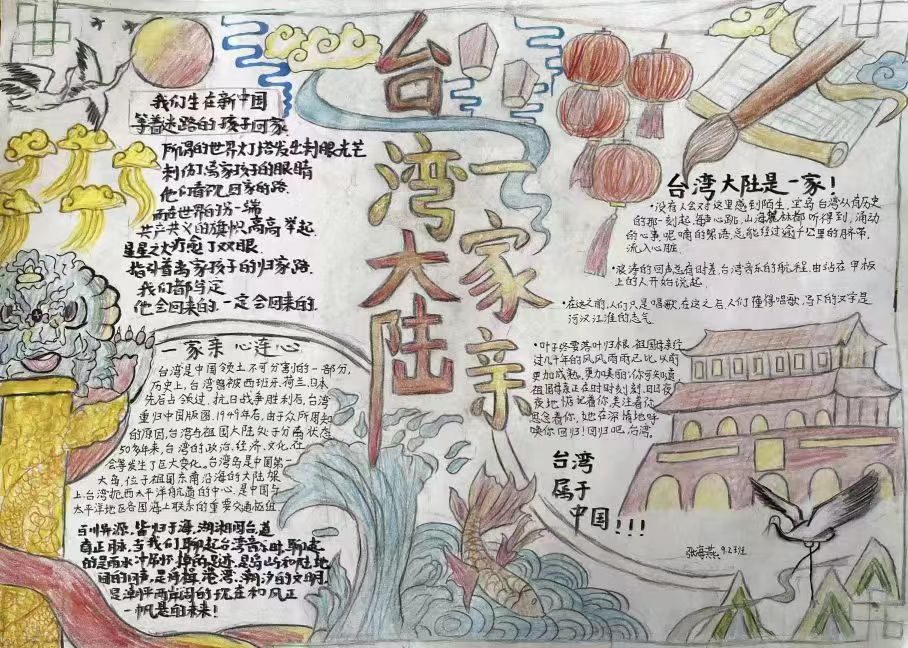 台湾大陆
一家亲
我们生在新中国
等着迷路的孩子回家
所谓的世界灯塔发出刺眼光芒
刺伤离家孩子的眼睛
他们看不见回家的路
而在世界的另一端
共产主义的旗帜高高举起
星星之火疗愈了双眼
指引着离家孩子的归家路.
我们都肯定
他会回来的,一定会回来的.
一家亲 心连心
台湾是中国领土不可分割的一部分,
历史上,台湾曾被西班牙、荷兰、日本
先后占领过,抗日战争胜利后,台湾
重归中国版图.1949年后,由于众所周知
的原因,台湾与祖国大陆处于分离状态
50多年来,台湾的政治、经济、文化、社
会等发生了巨大变化。台湾岛是中国第一
大岛,位于祖国东南沿海的大陆架
上.台湾扼西太平洋航道的中心,是中国与
太平洋地区各国海上联系的重要交通枢纽
百川异源,皆归于海,湖湘闽台,道
南正脉,当我们聊起台湾音乐时,聊起
的是雨水冲刷不掉的足迹,是岛屿和陆地
回的
声,是海
港湾,潮汐的文明,
是
两岸
的现在和风正
一帆是的未来!
台湾大陆是一家!
•没有人会对这里感到陌生,宝岛台湾从有历史
的那一刻起,每声心跳,山海麓林都听得到,涌动
的心事,呢喃的絮语,总能经过逾千公里的脐带,
流入心脏.
•浪涛的回声总有时差,台湾音乐的航程,由站在甲板
上的人开始说起.
•在这之前,人们只是唱歌,在这之后,人们懂得唱歌,写下的文字是
河汉江淮的志气
•叶子终要落叶归根,祖国母亲行
过几千年的风风雨雨,已比从前
更加成熟,更加美丽;你可知道
祖国母亲正在时时刻刻,日日夜
夜地惦记着你,关注着你,
思念着你,她在深情地呼
唤你回归!回归吧,台湾。
台湾
属于
中国!!!
张海燕 9.2班